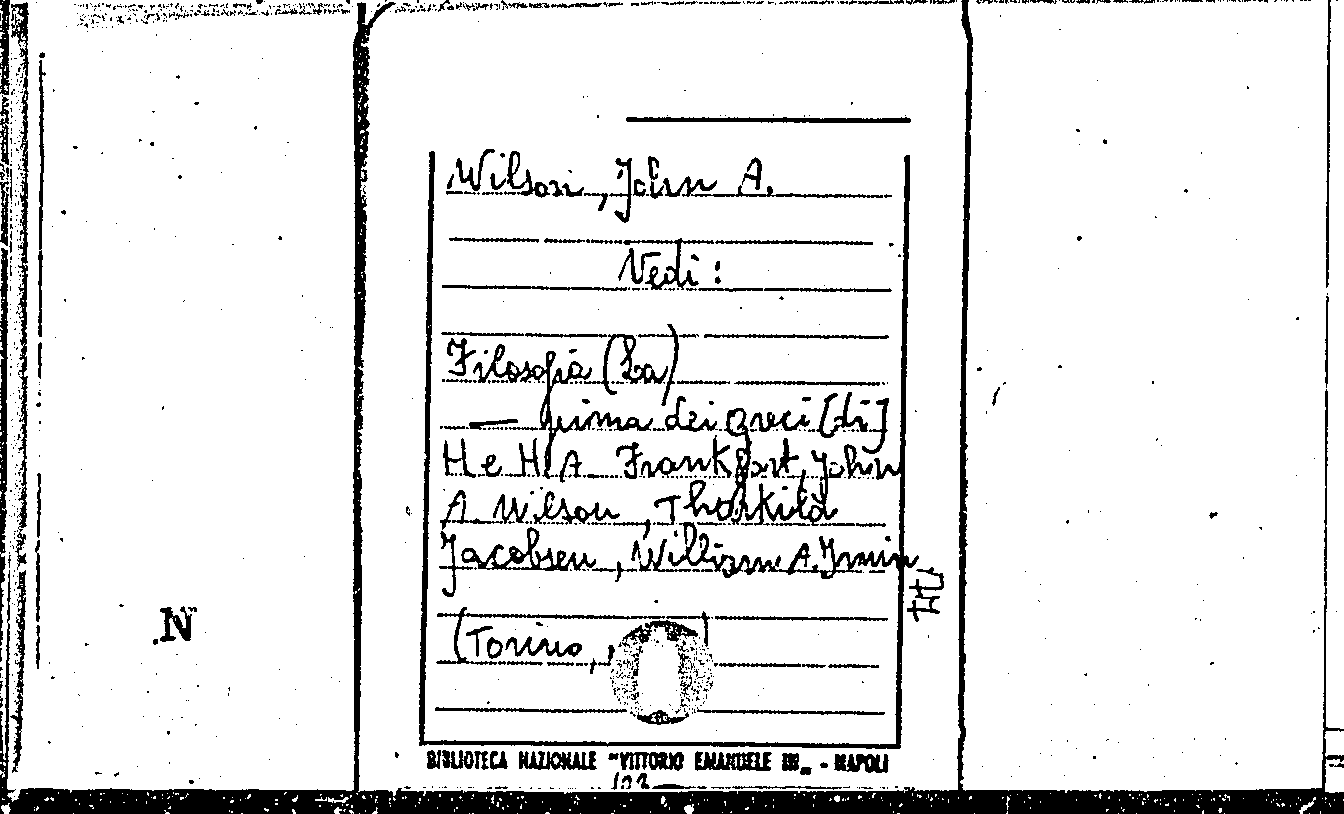 Wilson, John A.
Vedi:
Filosofia (La)
— prima dei Greci [di]
H e H.A. Frankfort, John
A. Wilson, Thorkild
Jacobsen, William A. Irwin
(Torino, )
N
BIBLIOTECA NAZIONALE "VITTORIO EMANUELE III„ - NAPOLI